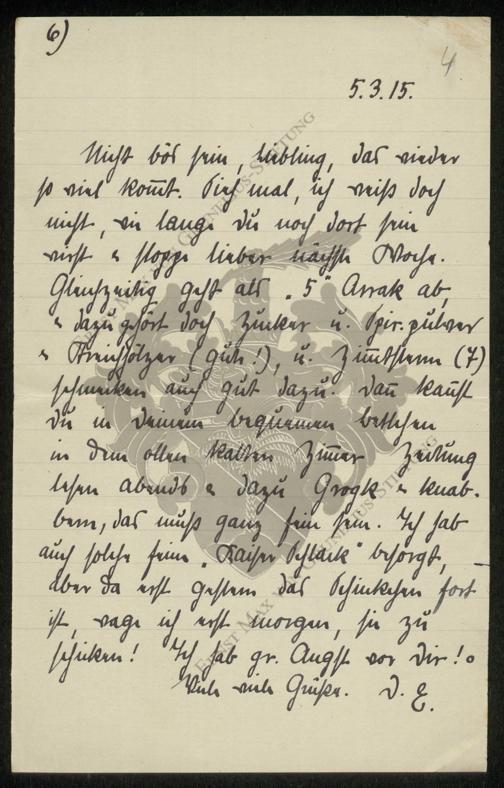 6)
4
5.3.15.
Nicht bös sein, Liebling, das wieder
so viel kommt. Sieh mal, ich weiß doch
nicht, wie lange Du noch dort sein
wirst & stoppe lieber nächste Woche.
Gleichzeitig geht als „5" Arrak ab,
& dazu gehört doch Zucker u. Spir.pulver
& Streichhölzer (gute!), u. Zimmtsterne (7)
schmecken auch gut dazu. Dann kannst
Du in Deinem bequemen Bettchen
in dem ollen kalten Zimmer Zeitung
lesen abends & dazu Grogk & knab-
bern, das muß ganz fein sein. Ich hab
auch solche feine „Kaiser Schlack" besorgt,
aber da erst gestern das Schinkchen fort
ist, wage ich erst morgen, sie zu
schicken! Ich hab gr. Angst vor Dir!
Viele viele Grüße. D. E.
ERNST MAX VON GRUNELIUS-STIFTUNG
ERNST MAX VON GRUNELIUS-STIFTUNG